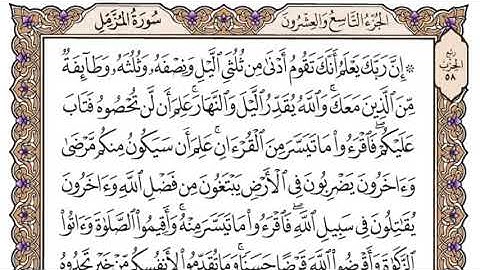 الجُزْءُ التَّاسِعُ وَالعِشْرُونَ سُورَةُ المُزَّمِّل
رُبْع
الحِزْب
٥٨
۞ إِنَّ رَبَّكَ يَعْلَمُ أَنَّكَ تَقُومُ أَدْنَىٰ مِن ثُلُثَيِ ٱلَّيْلِ وَنِصْفَهُۥ وَثُلُثَهُۥ وَطَآئِفَةٌ
مِّنَ ٱلَّذِينَ مَعَكَۚ وَٱللَّهُ يُقَدِّرُ ٱلَّيْلَ وَٱلنَّهَارَۚ عَلِمَ أَن لَّن تُحْصُوهُ فَتَابَ
عَلَيْكُمْۖ فَٱقْرَءُوا۟ مَا تَيَسَّرَ مِنَ ٱلْقُرْءَانِۚ عَلِمَ أَن سَيَكُونُ مِنكُم مَّرْضَىٰ
وَءَاخَرُونَ يَضْرِبُونَ فِى ٱلْأَرْضِ يَبْتَغُونَ مِن فَضْلِ ٱللَّهِ وَءَاخَرُونَ
يُقَٰتِلُونَ فِى سَبِيلِ ٱللَّهِۖ فَٱقْرَءُوا۟ مَا تَيَسَّرَ مِنْهُۚ وَأَقِيمُوا۟ ٱلصَّلَوٰةَ وَءَاتُوا۟
ٱلزَّكَوٰةَ وَأَقْرِضُوا۟ ٱللَّهَ قَرْضًا حَسَنًاۚ وَمَا تُقَدِّمُوا۟ لِأَنفُسِكُم مِّنْ خَيْرٍ تَجِدُوهُ